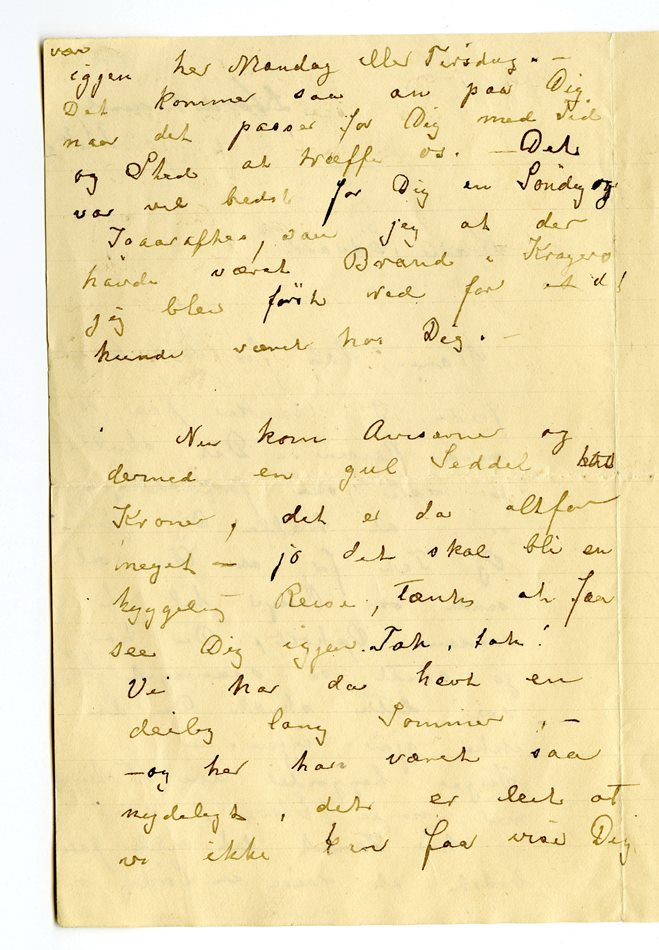 vær
igjen her Mandag eller Tirsdag. –
Det kommer saa an paa Dig,
naar det passer for Dig med Tid
og Sted at træffe os. – Det
var vel bedst for Dig en Søndag
Igaaraftes, saa jeg at der
havde været Brand i Kragerø
jeg blev først ræd for at d!
kunde været hos Dig. –
Nu kom Aviserne og
dermed en gul Seddel
Kroner, det er da altfor
meget – jo det skal bli en
hyggelig Reise, tænk at faa
see Dig igjen. Tak, tak!
Vi har da havt en
deilig lang Sommer, –
– og her har været saa
nydeligt, det er leit at
vi ikke kan faa vise Dig